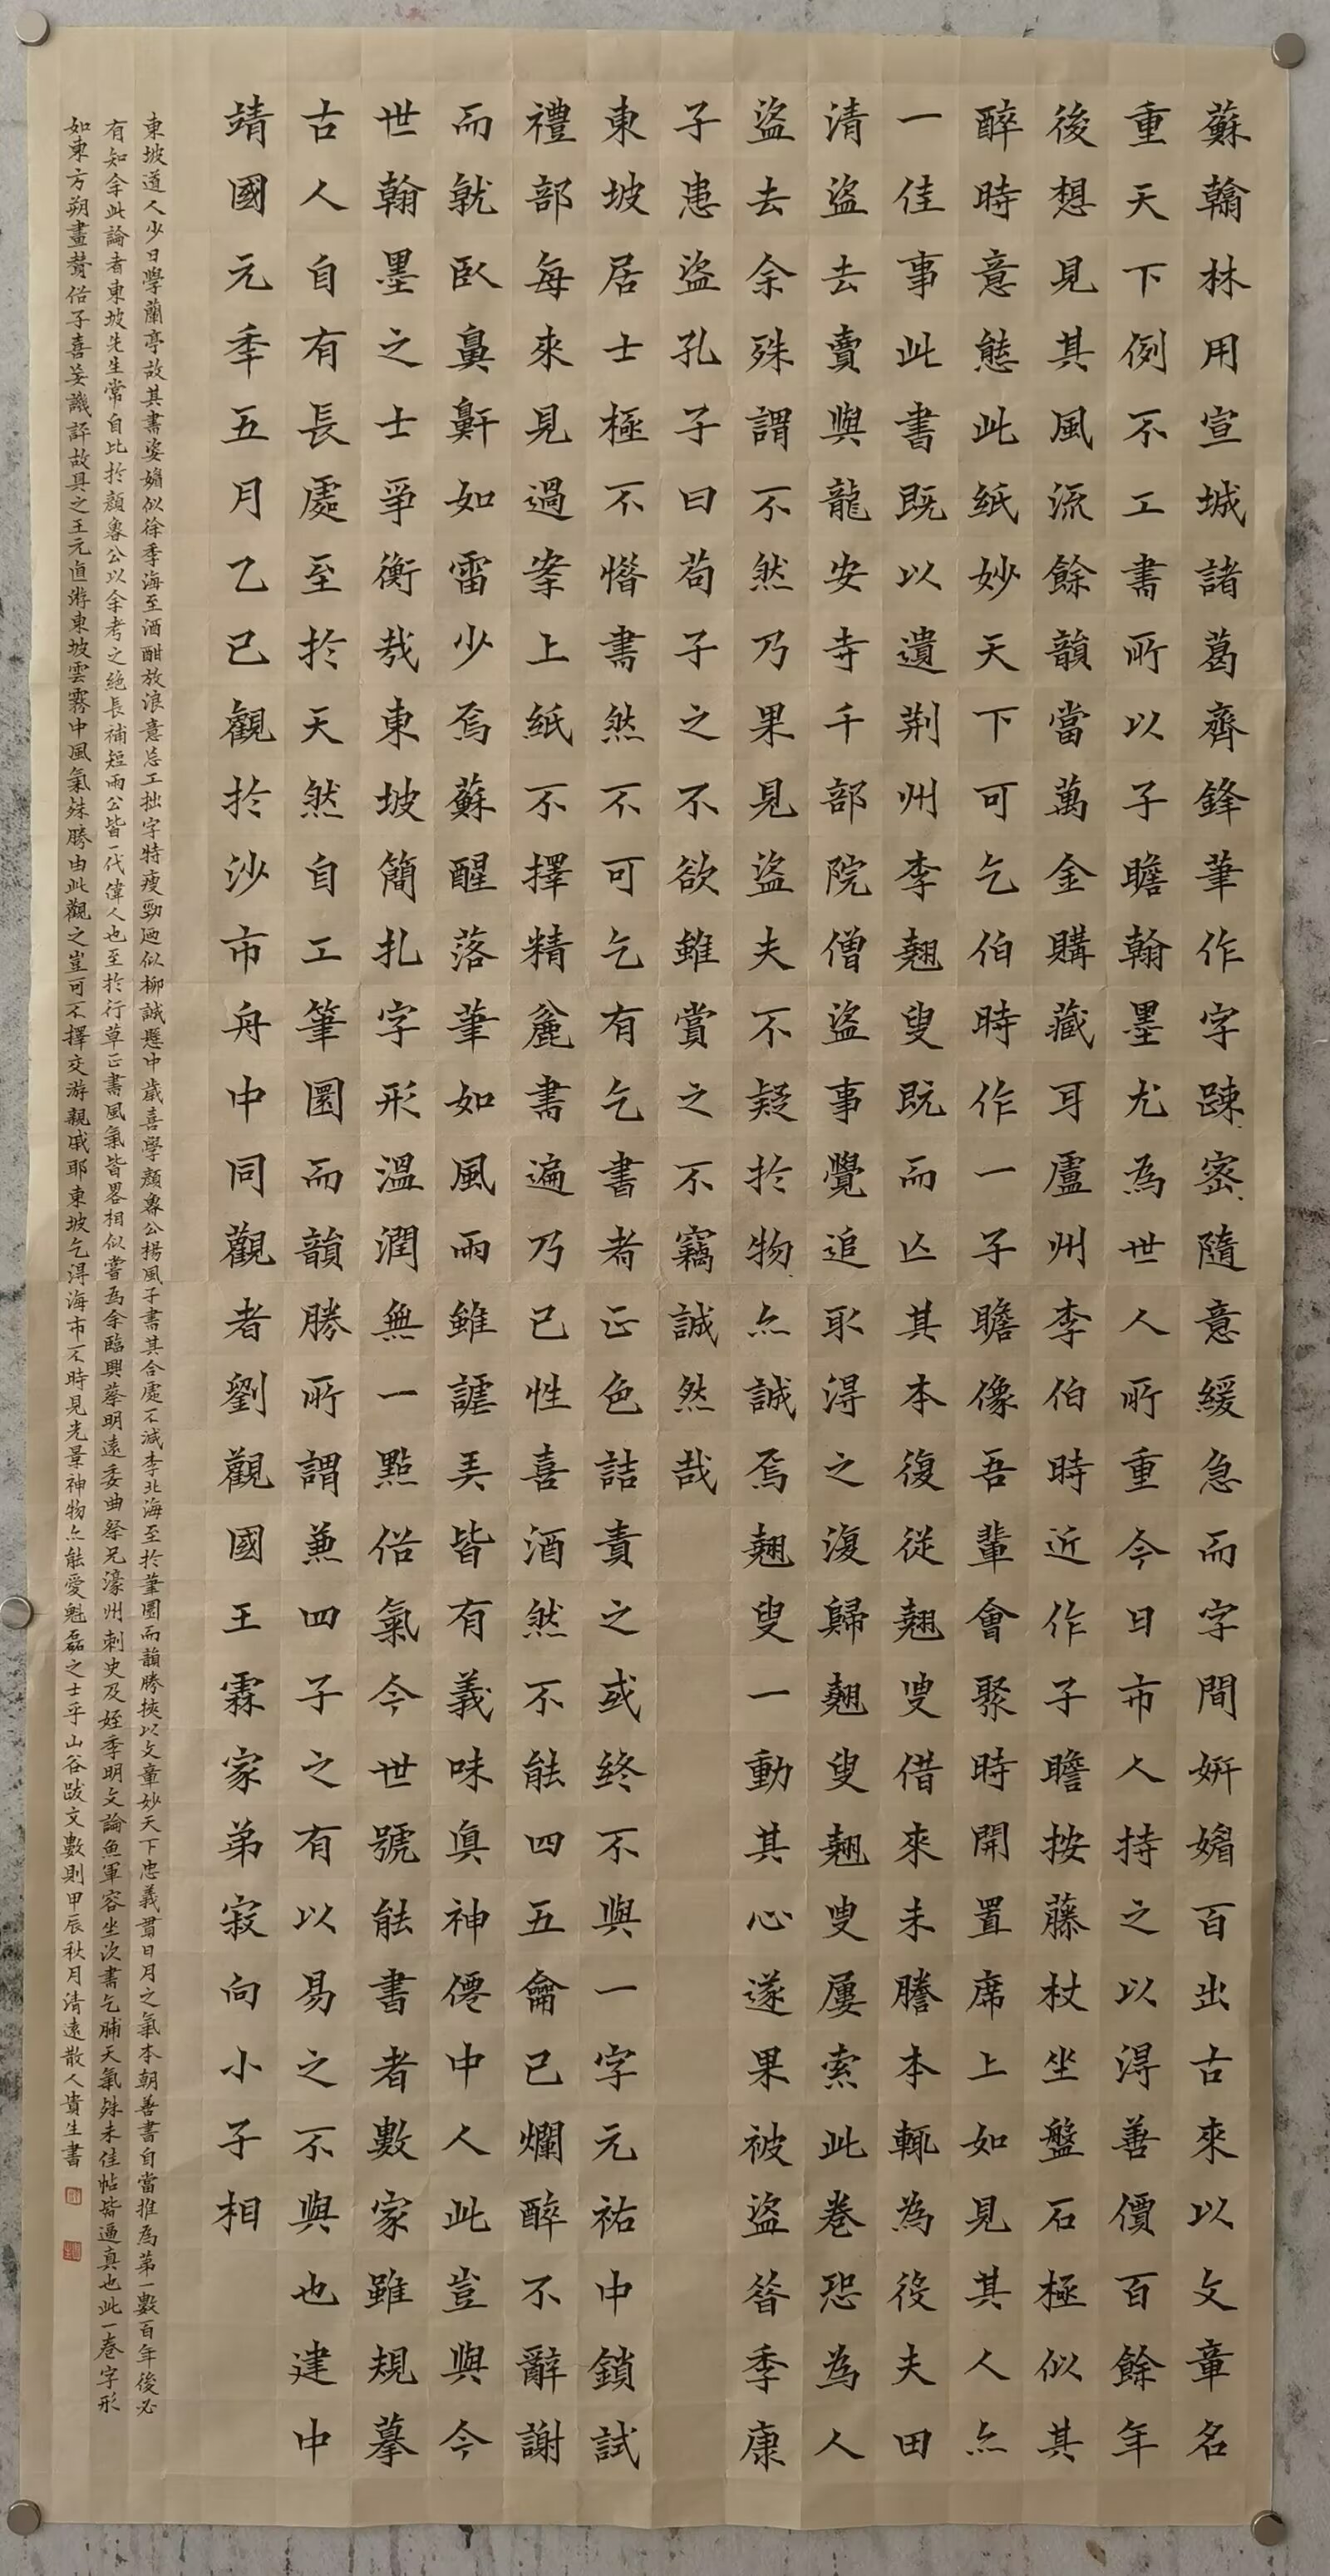 蘇翰林用宣城諸葛齊鋒筆作字踈宻隨意緩急而字間妍媚百出古來以文章名
重天下例不工書所以子瞻翰墨尤為世人所重今日市人持之以得善價百餘年
後想見其風流餘韻當萬金購藏耳盧州李伯時近作子瞻按藤杖坐盤石極似其
醉時意態此紙妙天下可乞伯時作一子瞻像吾輩會聚時開置席上如見其人亦
一佳事此書既以遺荆州李翹叟既而亾其本復從翹叟借來未謄本輒為役夫田
清盜去賣與龍安寺千部院僧盜事覺追取得之復歸翹叟翹叟屢索此卷恐為人
盜去余殊謂不然乃果見盜夫不疑於物亦誠焉翹叟一動其心遂果被盜昝季康
子患盜孔子曰苟子之不欲雖賞之不竊誠然哉
東坡居士極不惜書然不可乞有乞書者正色詰責之或終不與一字元祐中鎖試
禮部每來見過案上紙不擇精麁書遍乃已性喜酒然不能四五龠已爛醉不辭謝
而就臥鼻鼾如雷少焉蘇醒落筆如風雨雖謔弄皆有義味真神僊中人此豈與今
世翰墨之士爭衡哉東坡簡札字形溫潤無一點俗氣今世號能書者數家雖規摹
古人自有長處至於天然自工筆圓而韻勝所謂兼四子之有以易之不與也建中
靖國元年五月乙巳觀於沙市舟中同觀者劉觀國王霖家弟寂向小子相
東坡道人少日學蘭亭故其書姿媚似徐季海至酒酣放浪意忘工拙字特瘦勁迺似柳誠懸中歲喜學顏魯公楊風子書其合處不減李北海至於筆圓而韻勝挾以文章妙天下忠義貫日月之氣本朝善書自當推為第一數百年後必
有知余此論者東坡先生常自比於顏魯公以余考之絶長補短兩公皆一代偉人也至於行草正書風氣皆畧相似嘗為余臨與蔡明遠委曲祭兄濠州刺史及姪季明文論魚軍容坐次書乞脯天氣殊未佳帖皆逼真也此一卷字形
如東方朔畫贊俗子喜妄譏評故具之王元直游東坡雲霧中風氣殊勝由此觀之豈可不擇交游親戚耶東坡乞得海市不時見光景神物亦能愛魁磊之士乎山谷跋文數則甲辰秋月清遠散人貴生書